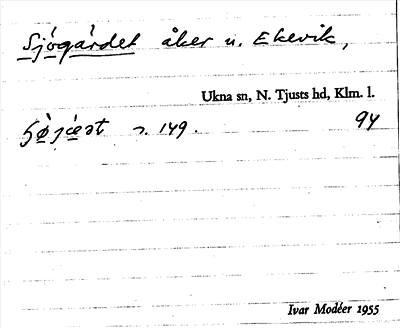 Sjögärdet åker u. Ekevik,
Ukna sn, N. Tjusts hd, Klm. l.
s. 149. 94
Ivar Modéer 1955